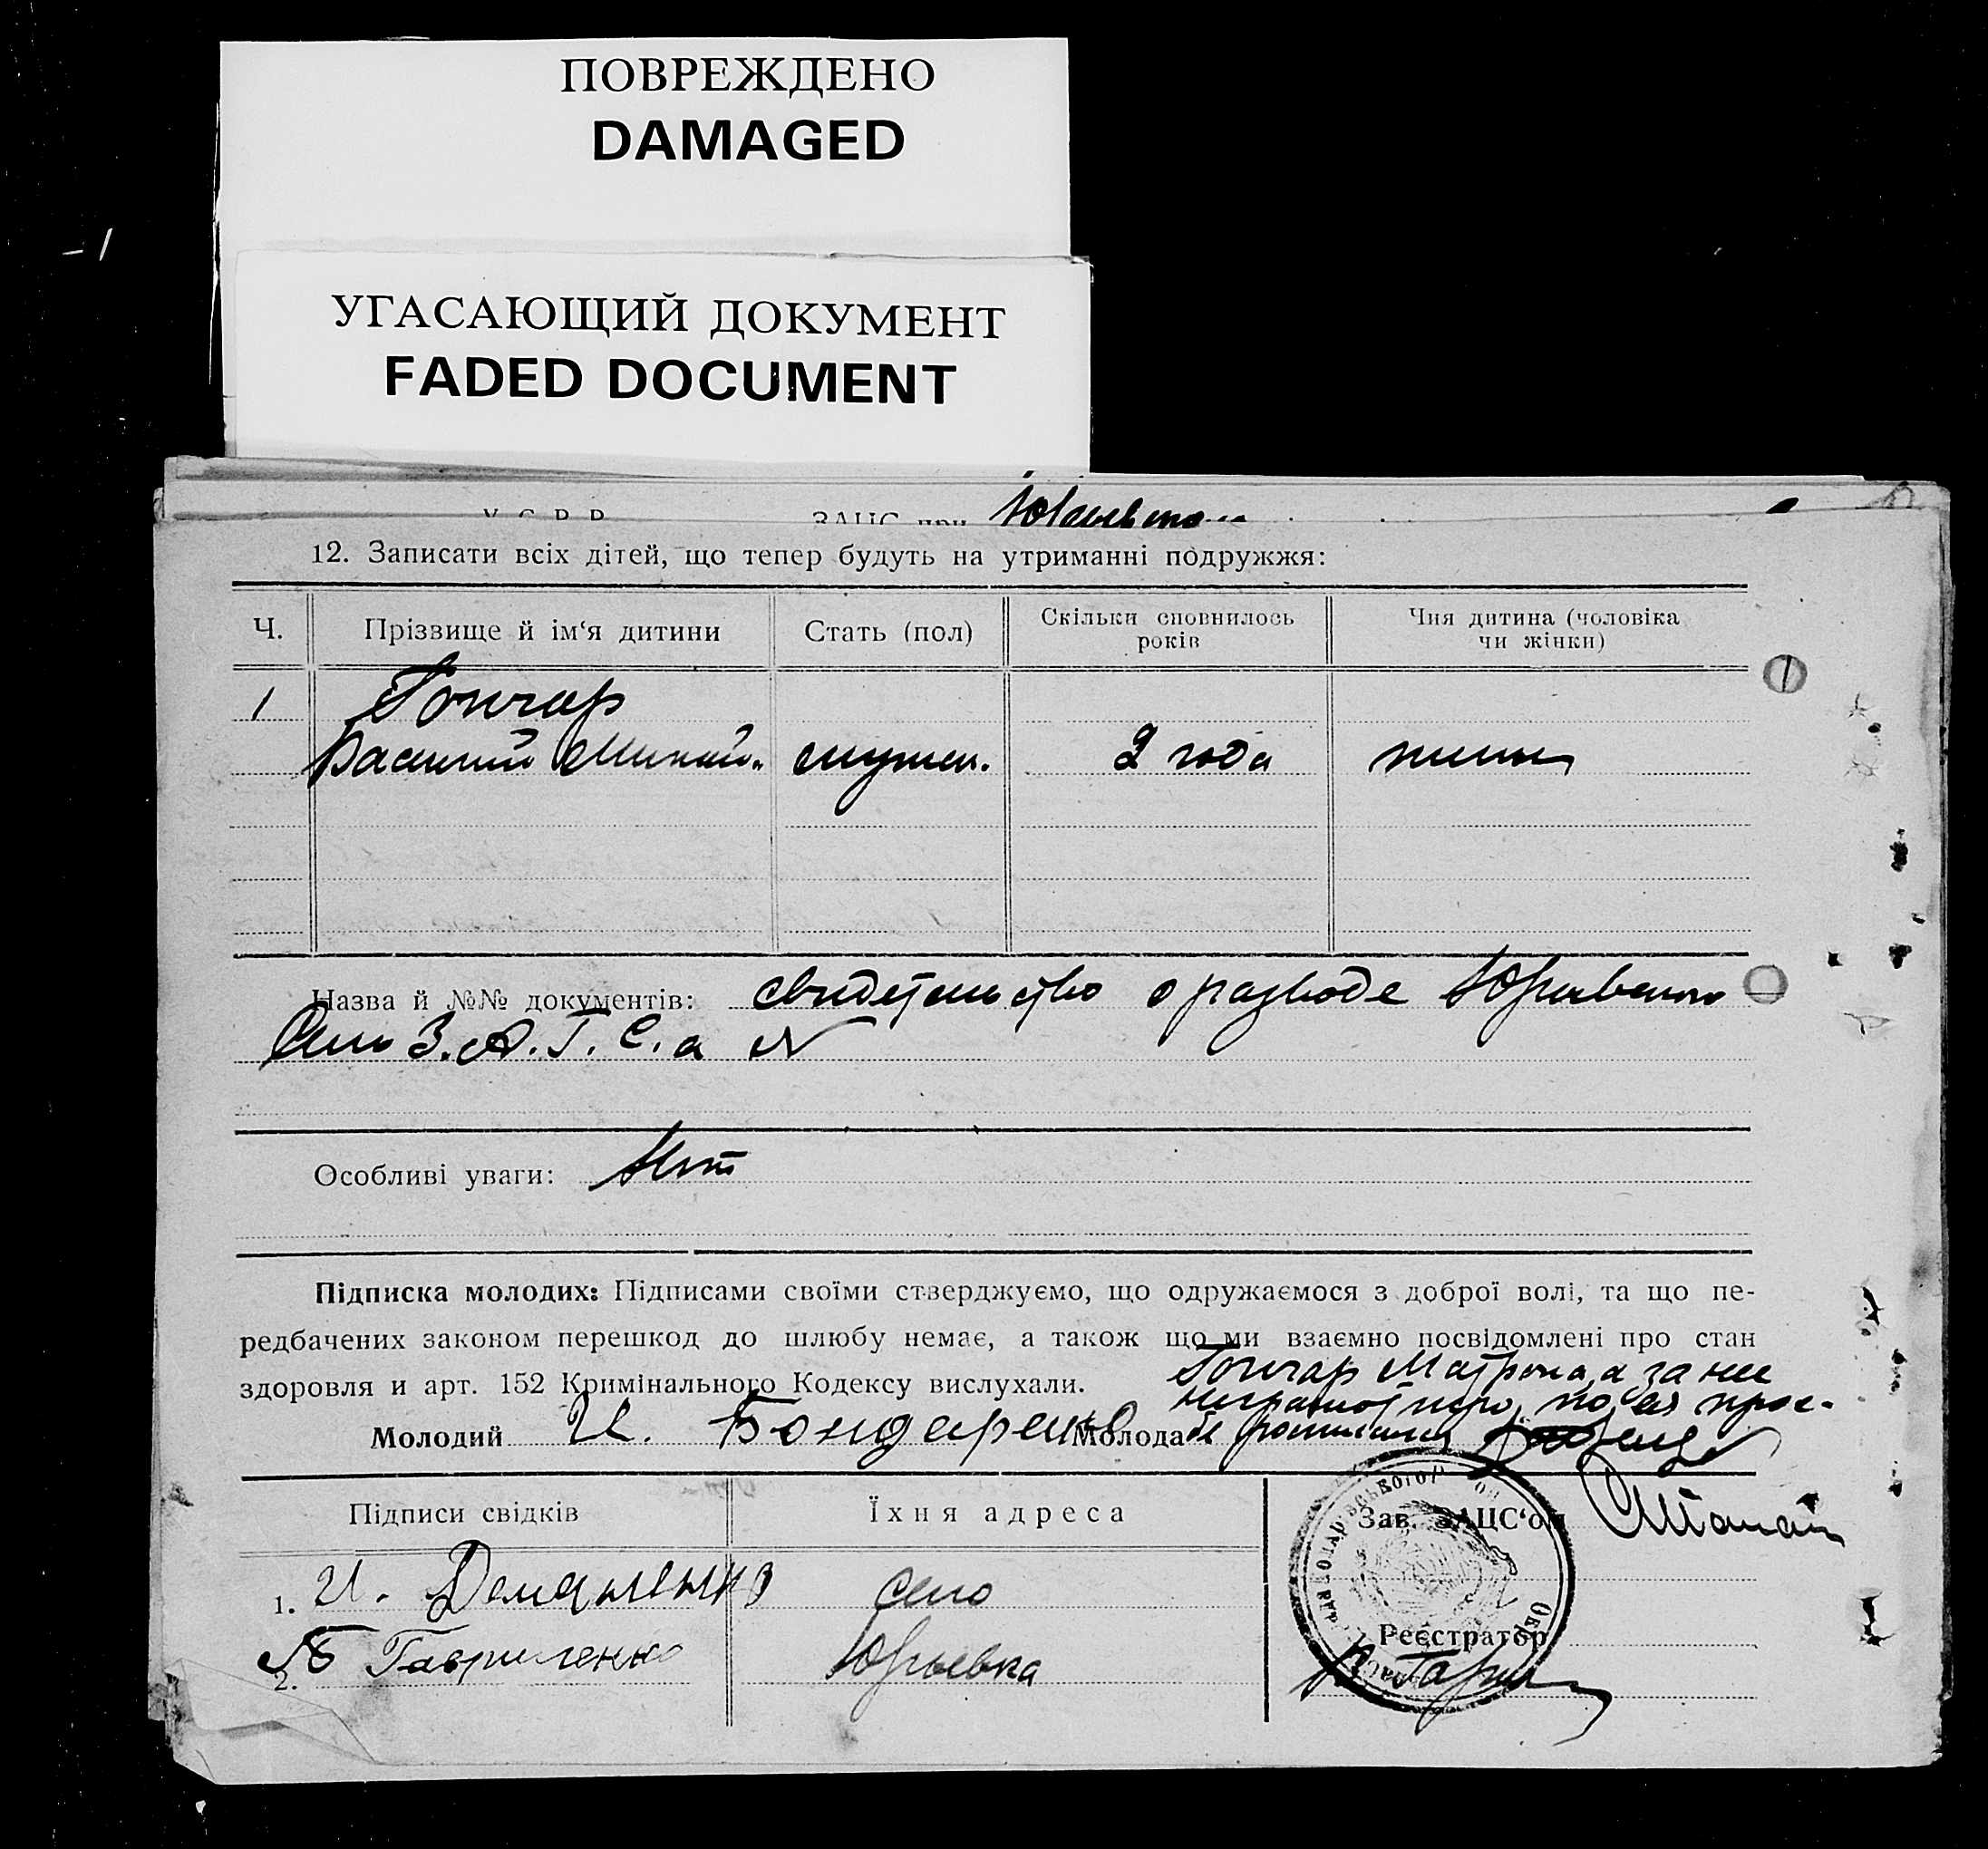 ПОВРЕЖДЕНО
DAMAGED
УГАСАЮЩИЙ ДОКУМЕНТ
FADED DOCUMENT
У. С. Р. Р. ЗАЦС при
12. Записати всіх дітей, що тепер будуть на утриманні подружжя:
Ч. Прізвище й ім‘я дитини Стать (пол) Скільки сповнилось років Чия дитина (чоловіка чи жінки)
1 Гончар
Василий Михай. мужск. 2 года жены
Назва й №№ документів: свидетельство о разводе Юрьевского
Сель З.А.Г.С.а №
Особливі уваги: Нет
Підписка молодих: Підписами своїми стверджуємо, що одружаємося з доброї волі, та що пе-
редбачених законом перешкод до шлюбу немає, а також що ми взаємно посвідомлені про стан
здоровля и арт. 152 Кримінального Кодексу вислухали.
Гончар Матрона, а за не
неграмотную, по ея прос-
Молодий И. Бондаренко Молода бе росписался
Підписи свідків Їхня адреса Зав. ЗАЦС‘ом
1. И. Демяненко село
2. Гавриленко Юрьевка
Реєстратор